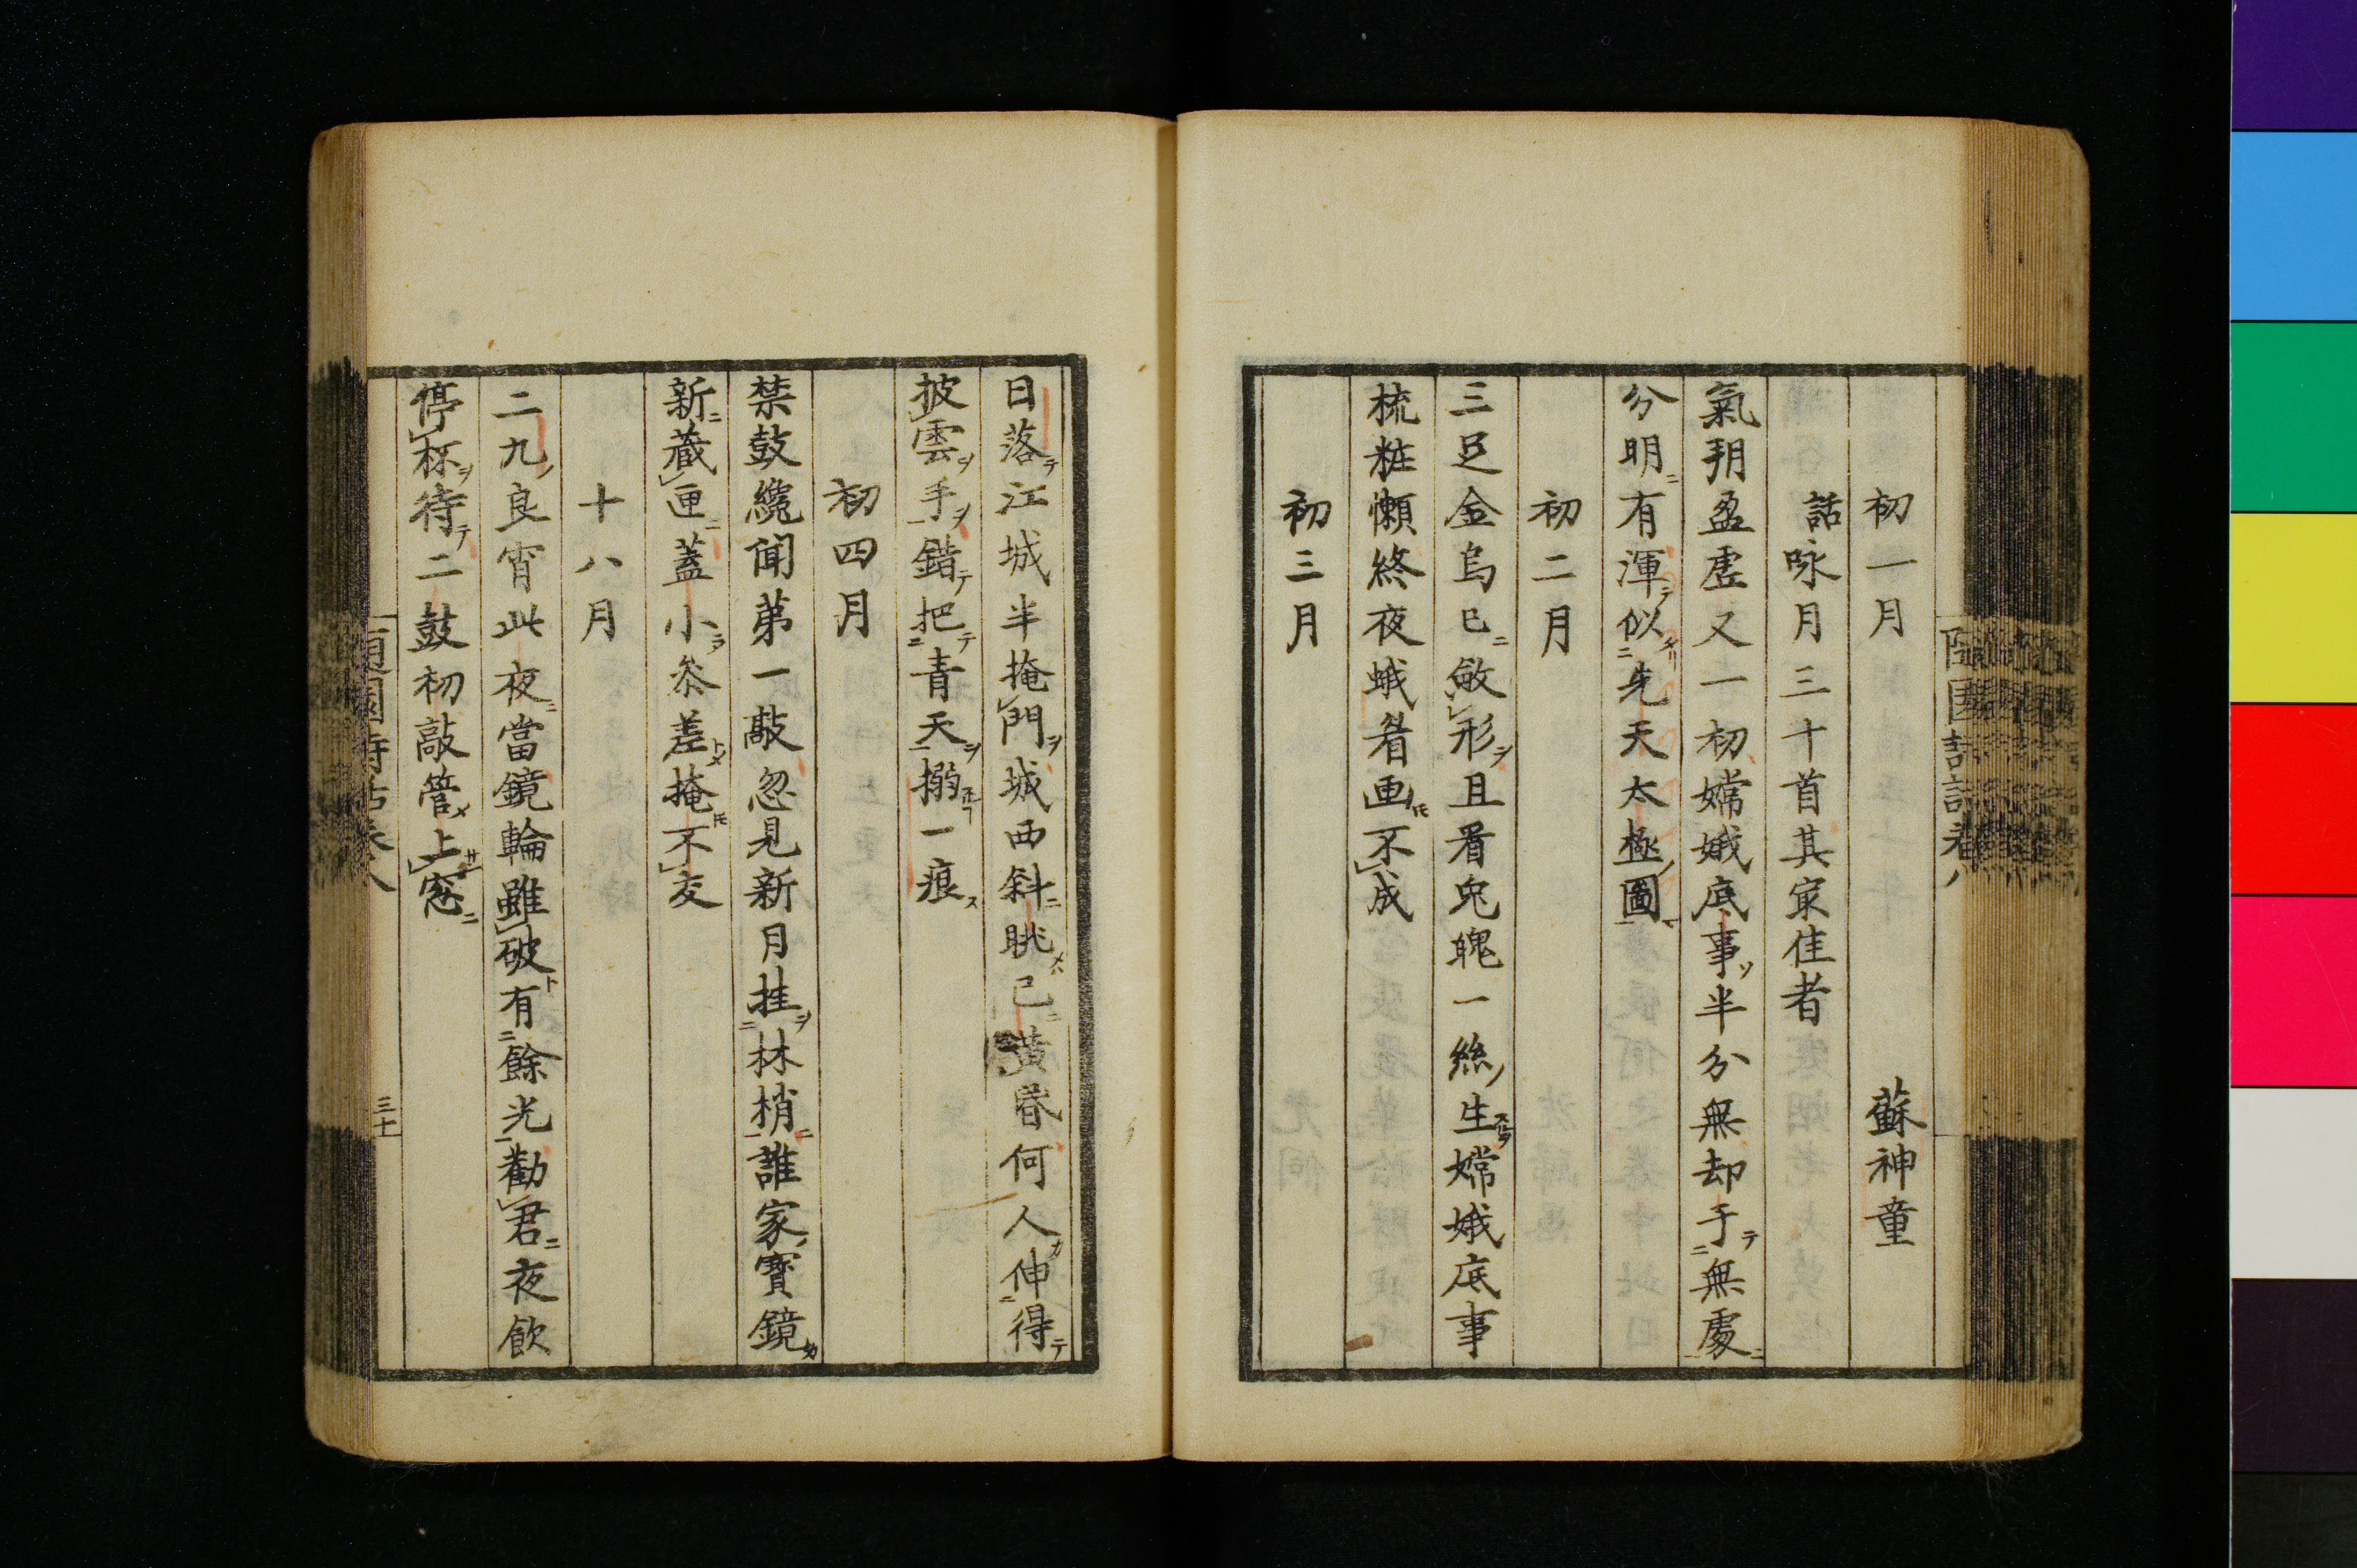 初一月 蘇神童
話咏月三十首其㝡佳者
氣朔盈虛又一初嫦娥底事半分無却于無處
分明有渾似先天太極圖
初二月
三足金烏已斂形且看兔魄一絲生嫦娥底事
梳粧懶終夜蛾眉画不成
初三月
日落江城半掩門城西斜眺已黄昏何人伸得
披雲手錯把青天搦一痕
初四月
禁鼓纔聞第一敲忽見新月挂林梢誰家寳鏡
新藏匣蓋小叅差掩不交
十八月
二九良宵此夜當鏡輪雖破有餘光勸君夜飲
停杯待二鼓初敲管上窓
三十